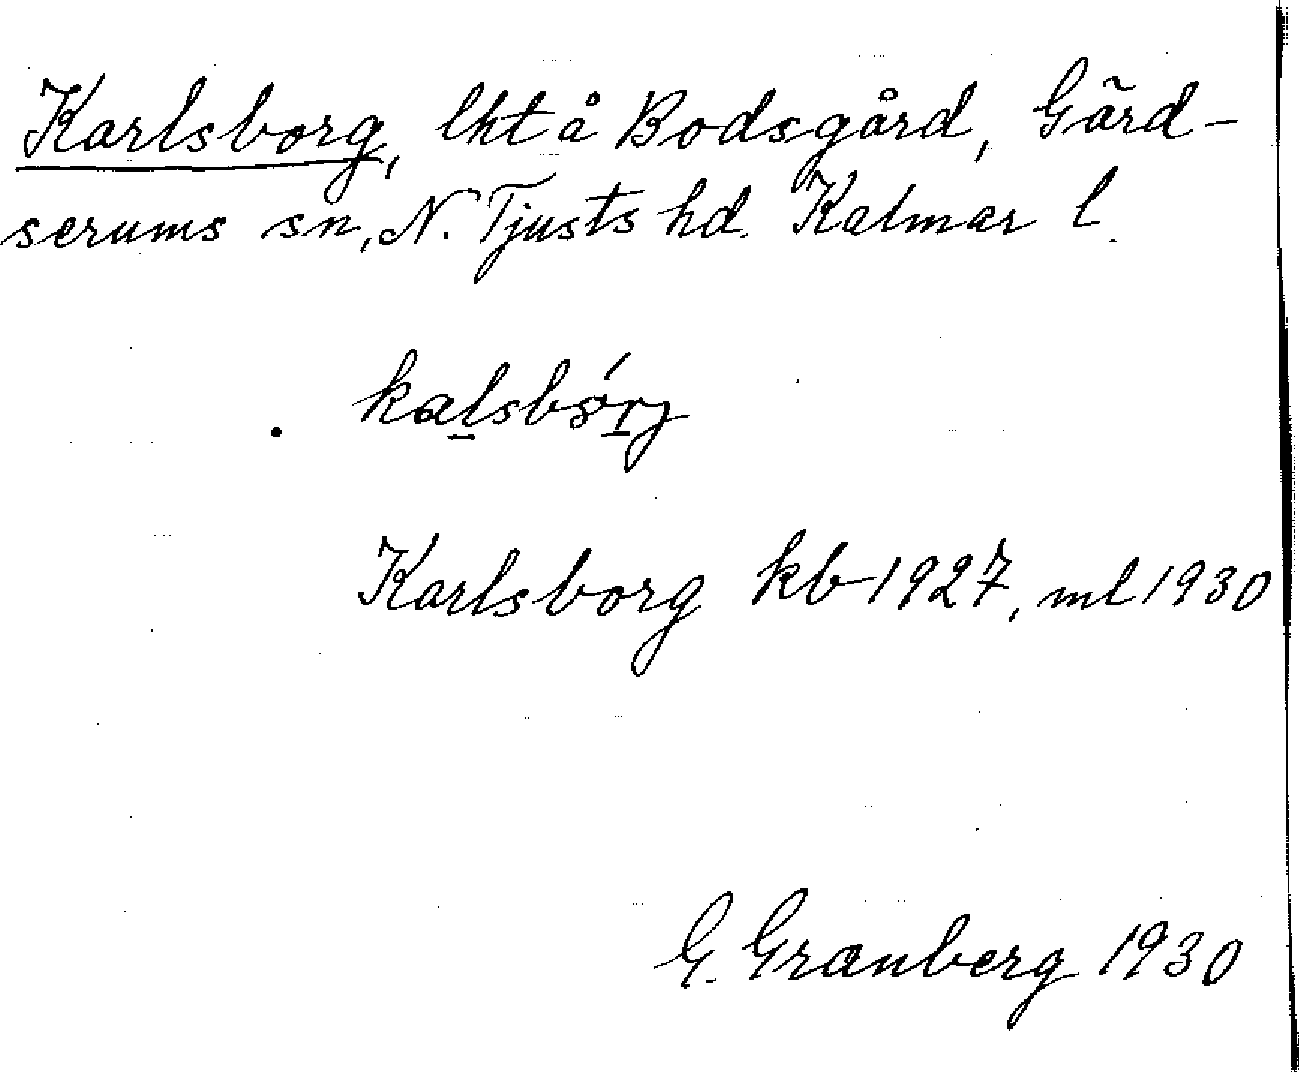 Karlsborg, lht å Bodsgård, Gärd-
serums sn, N. Tjusts hd. Kalmar l.
Karlsborg kb 1927, ml 1930
G. Granberg 1930